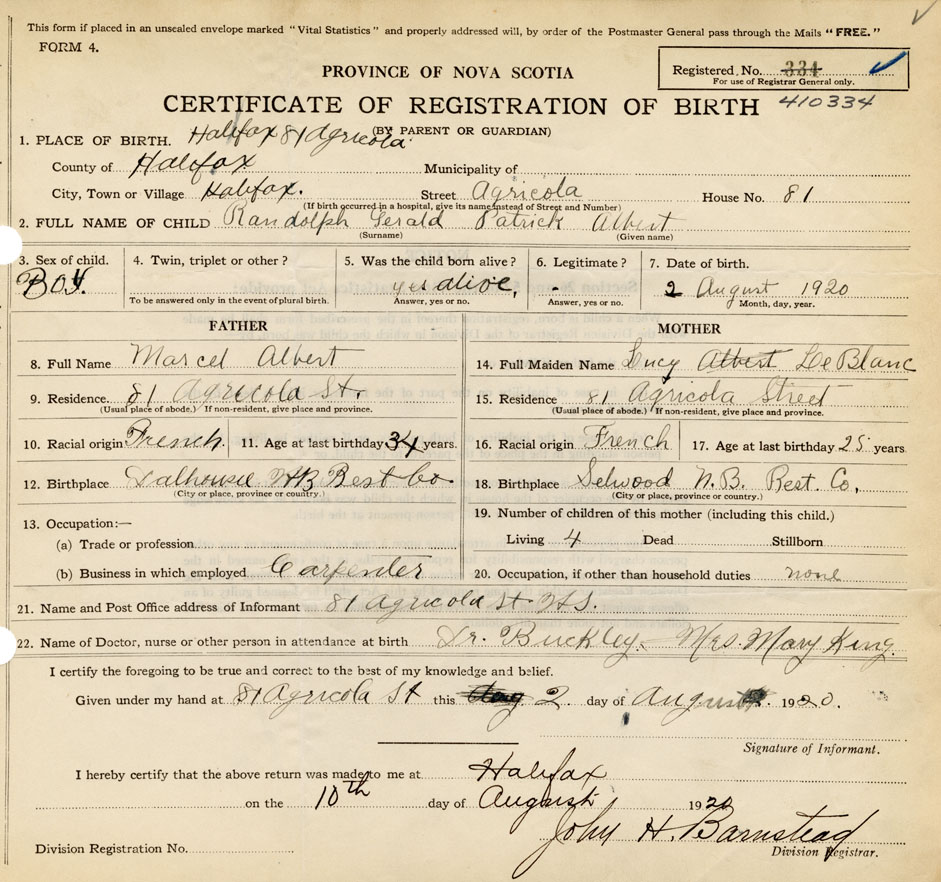 This form if placed in an unsealed envelope marked "Vital Statistics" and properly addressed will, by order of the Postmaster General pass through the Mails "FREE."
FORM 4.
Registered, No. 334
For use of Registrar General only.
PROVINCE OF NOVA SCOTIA
CERTIFICATE OF REGISTRATION OF BIRTH 410334
(BY PARENT OR GUARDIAN)
1. PLACE OF BIRTH. Halifax 81 Agricola
County of Halifax Municipality of
City, Town or Village Halifax. Street Agricola House No. 81
(If birth occurred in a hospital, give its name instead of Street and Number)
2. FULL NAME OF CHILD Randolph Gerald Patrick Albert
(Surname) (Given name)
3. Sex of child. 4. Twin, triplet or other? 5. Was the child born alive? 6. Legitimate? 7. Date of birth.
BOY. yes alive, - 2 August 1920
To be answered only in the event of plural birth. Answer, yes or no. Answer, yes or no. Month, day, year.
FATHER MOTHER
8. Full Name Marcel Albert 14. Full Maiden Name Lucy Albert LeBlanc
9. Residence. 81 Agricola St. 15. Residence 81 Agricola Street
(Usual place of abode.) If non-resident, give place and province. (Usual place of abode.) If non-resident, give place and province.
10. Racial origin French. 11. Age at last birthday 34 years. 16. Racial origin French 17. Age at last birthday 25 years
12. Birthplace Dalhousie NB Rest Co. 18. Birthplace Selwood N.B. Rest. Co,
(City or place, province or country.) (City or place, province or country.)
13. Occupation:— 19. Number of children of this mother (including this child.)
(a) Trade or profession Living 4 Dead Stillborn
(b) Business in which employed Carpenter 20. Occupation, if other than household duties none
21. Name and Post Office address of Informant 81 Agricola St.
22. Name of Doctor, nurse or other person in attendance at birth Dr. Buckley. Mrs. Mary King
I certify the foregoing to be true and correct to the best of my knowledge and belief.
Given under my hand at 81 Agricola St this Aug 2. day of August. 1920.
Signature of Informant.
I hereby certify that the above return was made to me at Halifax
on the 10th day of August 1920
John H. Barnstead
Division Registration No. Division Registrar.